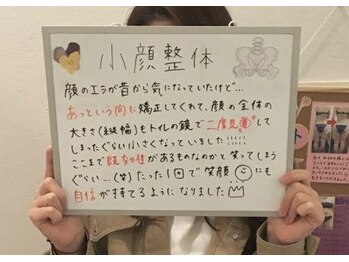 小顔整体
顔のエラが昔から気になっていたけど…
あっという間に矯正してくれて、顔の全体の
大きさ(縦幅)もトイレの鏡で二度見して
しまったぐらい小さくなっていました!!!!!!
ここまで即効性があるものなのかと笑ってしまう
ぐらい…(笑)たった1回で笑顔にも
自信が持てるようになりました